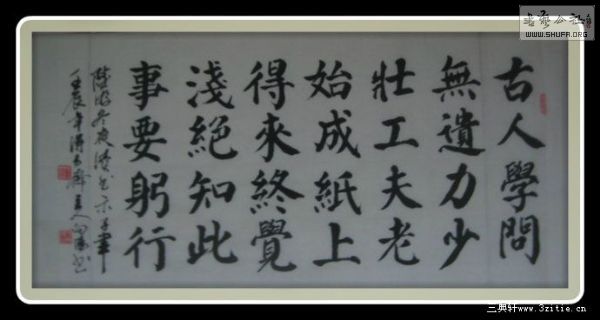 古人學問
無遺力少
壯工夫老
始成紙上
得來終覺
淺絕知此
事要躬行
陸游冬夜讀書示子聿
壬辰年
WWW.SHUFA.ORG
三典轩www.3zitie.cn